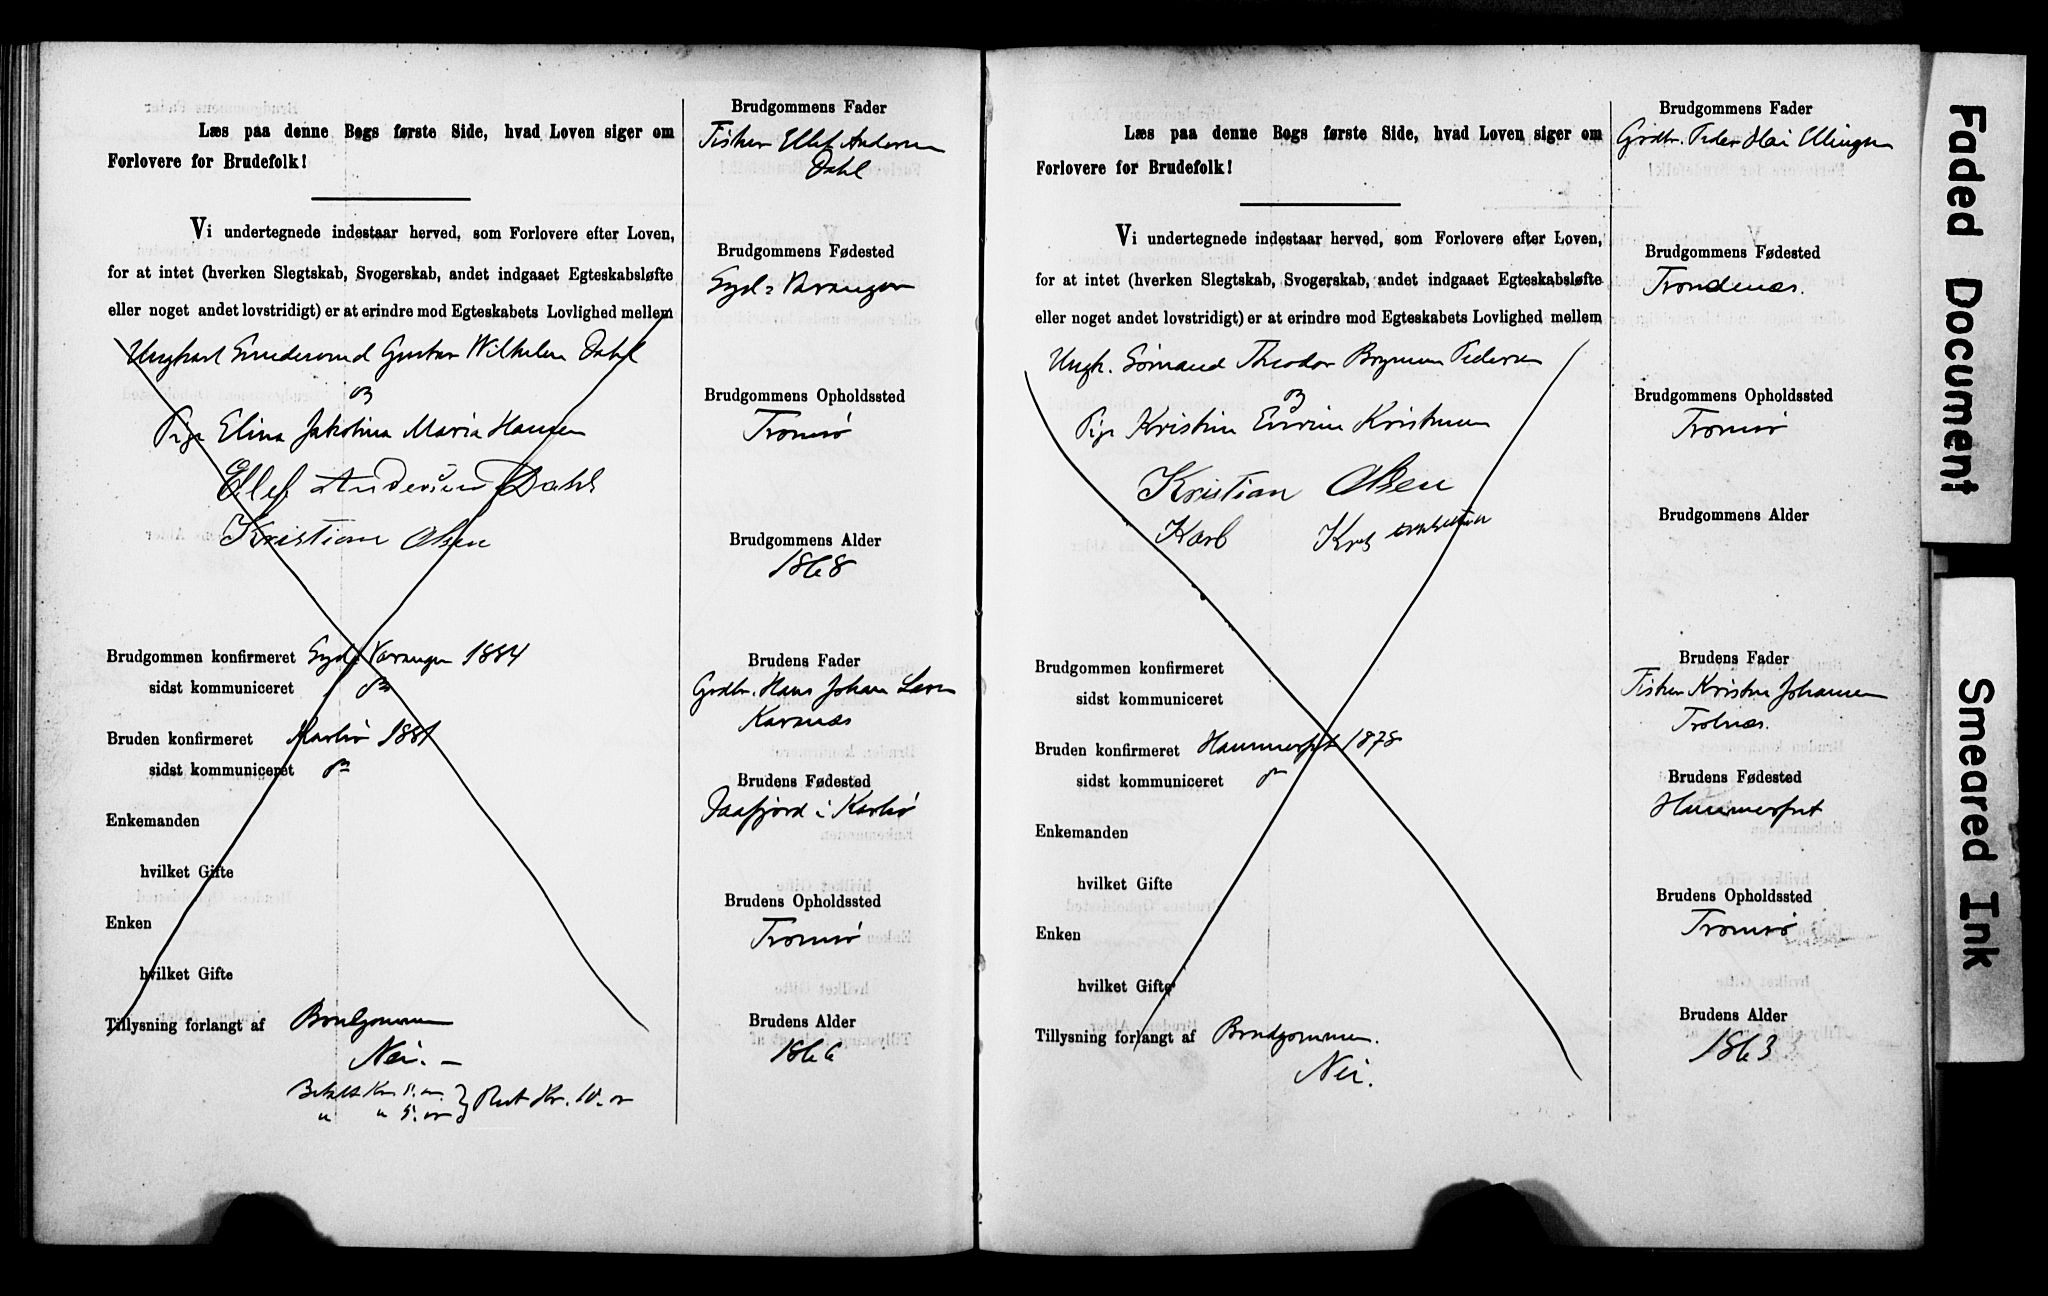 Læs paa denne Bogs første Side, hvad Loven siger om
Forlovere for Brudefolk!
Vi undertegnede indestaar herved, som Forlovere efter Loven,
for at intet (hverken Slegtskab, Svogerskab, andet indgaaet Egteskabsløfte
eller noget andet lovstridigt) er at erindre mod Egteskabets Lovlighed mellem
Ungkarl Gustav Wilhelm Dahl
Pige Elina Jakobina Maria Hansen
Ellef Andersen Dahl
Kristian Olsen
Brudgommen konfirmeret Syd-Varanger 1884
sidst kommuniceret
Bruden konfirmeret Karlsø 1881
sidst kommuniceret
Enkemanden
hvilket Gifte
Enken
hvilket Gifte
Tillysning forlangt af Brudgommen
Nei. –
Betalt Kr. } Rest Kr. 10.
" "
Brudgommens Fader
Fisker Ellef Andersen
Dahl
Brudgommens Fødested
Syd-Varanger
Brudgommens Opholdssted
Tromsø
Brudgommens Alder
1868
Brudens Fader
Grdbr. Hans Johan
Brudens Fødested
i Karlsø
Brudens Opholdssted
Tromsø
Brudens Alder
1866
Læs paa denne Bogs første Side, hvad Loven siger om
Forlovere for Brudefolk!
Vi undertegnede indestaar herved, som Forlovere efter Loven,
for at intet (hverken Slegtskab, Svogerskab, andet indgaaet Egteskabsløfte
eller noget andet lovstridigt) er at erindre mod Egteskabets Lovlighed mellem
Ungk. Sømand Theodor Pedersen
Pige Kristine
Kristian Olsen
Karl
Brudgommen konfirmeret
sidst kommuniceret
Bruden konfirmeret Hammerfest 1878
sidst kommuniceret
Enkemanden
hvilket Gifte
Enken
hvilket Gifte
Tillysning forlangt af Brudgommen.
Nei.
Brudgommens Fader
Grdbr. Peder
Brudgommens Fødested
Trondenæs.
Brudgommens Opholdssted
Tromsø
Brudgommens Alder
Brudens Fader
Fisker Johansen
Brudens Fødested
Hammerfest
Brudens Opholdssted
Tromsø
Brudens Alder
1863
Faded Document
Smeared Ink